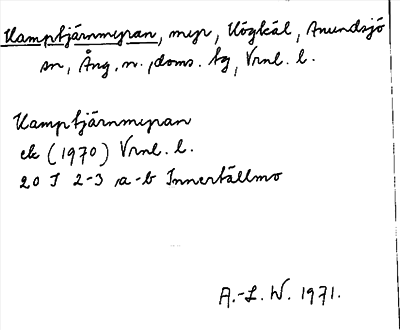 Kamptjärnmyran, myr, Högkäl, Anundsjö
sn, Ång. n. doms. tg, Vrnl. l.
Kamptjärnmyran
ek (1970) Vrnl. l.
20 J 2-3 a-b Innertällmo
A.-L. W. 1971.